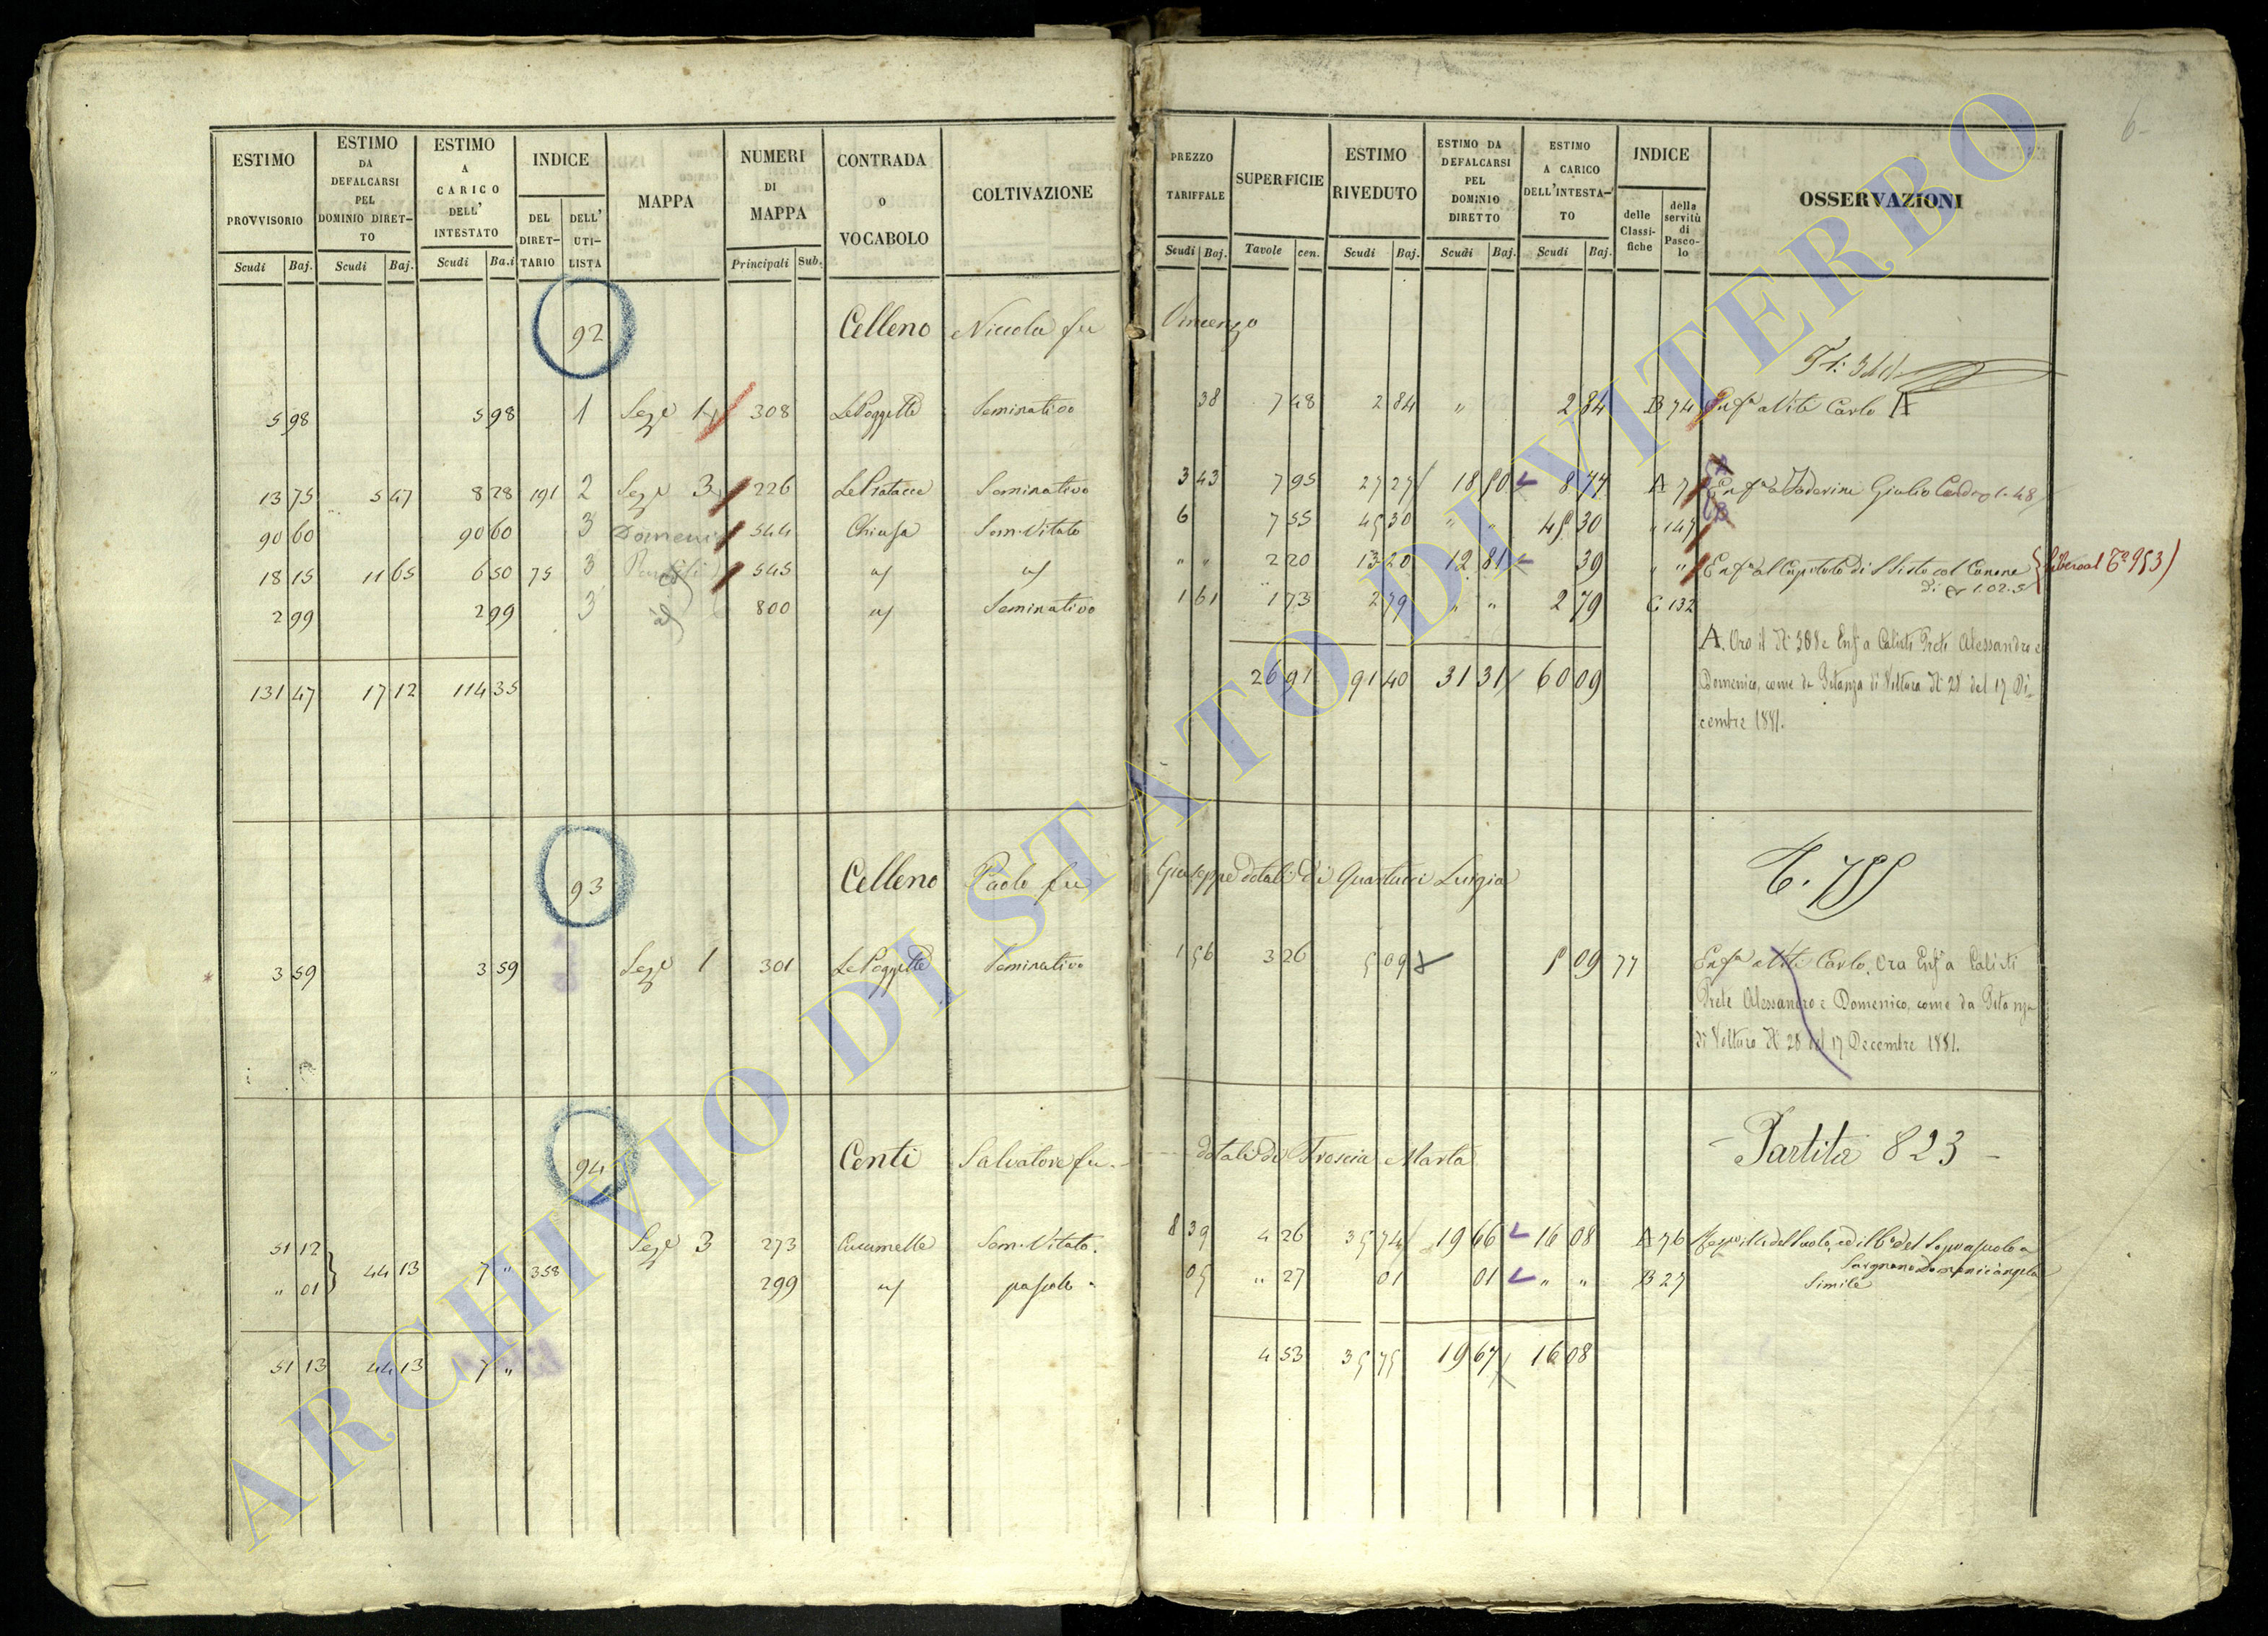 ESTIMO PROVVISORIO Scudi Baj.
ESTIMO DA DEFALCARSI PEL DOMINIO DIRET-TO Scudi Baj.
ESTIMO A CARICO DELL' INTESTATO Scudi Ba.i
INDICE DEL DIRET-TARIO DELL' UTI-LISTA
MAPPA
NUMERI DI MAPPA Principali Sub.
CONTRADA O VOCABOLO
COLTIVAZIONE
PREZZO TARIFFALE Scudi Baj.
SUPERFICIE Tavole cen.
ESTIMO RIVEDUTO Scudi Baj.
ESTIMO DA DEFALCARSI PEL DOMINIO DIRETTO Scudi Baj.
ESTIMO A CARICO DELL'INTESTA-TO Scudi Baj.
INDICE delle Classi-fiche della servitù di Pasco-lo
OSSERVAZIONI
6-
92 Celleno Niccola fu Vincenzo
5 98 5 98 1 Sez.e 1 308 Le Poggette Seminativo 38 7 48 2 84 " 2 84 B 74 Enf.a a Vite Carlo A
13 75 5 47 8 28 191 2 Sez.e 3 226 Le Pratacce Seminativo 3 43 7 95 27 27 18 50 8 77 A 7 Enf.a a Giulio
90 60 90 60 3 544 Chiusa Sem. Vitato 6 7 55 45 30 " " 45 30 " 147
18 15 11 65 6 50 75 3 545 2 20 13 20 12 81 39 " " Enf.a al Capitolo di S Sisto col Canone
di 1.02.5
2 99 2 99 3 800 Seminativo 1 61 1 73 2 79 " " 2 79 C 132
131 47 17 12 114 35 26 91 91 40 31 31 60 09
A. Ora il N° 308 e Enf.a Calisti Prete Alessandro e
Domenico, come da Istanza di Voltura N° 28 del 17 Di-
cembre 1881.
93 Celleno Paolo fu Giuseppe dotali di Quartucci Luigia
3 59 3 59 Sez.e 1 301 Le Poggette Seminativo 1 56 3 26 5 09 5 09 77 Enf.a a Vite Carlo, Ora Enf.a Calisti
Prete Alessandro e Domenico, come da Istanza
di Voltura N° 28 del 17 Decembre 1881.
94 Centi Salvatore fu - dotali di Froscia Marta - Partita 823 -
51 12 44 13 7 " 358 Sez.e 3 273 Cucumelle Sem. Vitato. 8 39 4 26 35 74 19 66 16 08 A 76
" 01 299 pascolo 05 " 27 01 01 " " B 27 Simile
51 13 44 13 7 " 4 53 35 75 19 67 16 08
ARCHIVIO DI STATO DI VITERBO